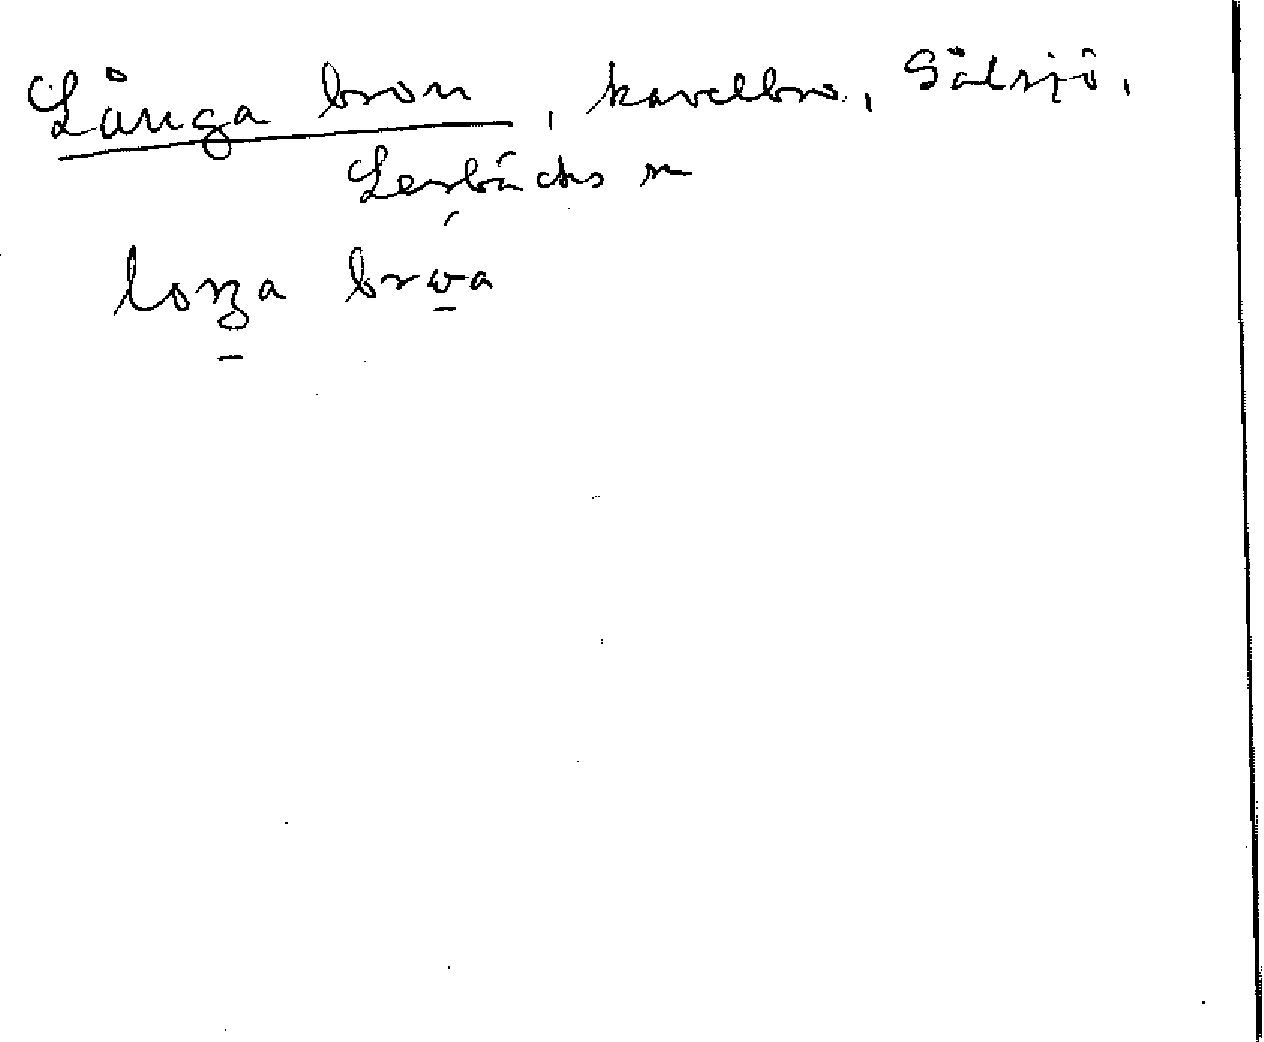 Långa bron, kavelbro, Sälsjö,
Lerbäcks sn
loŋa brωa